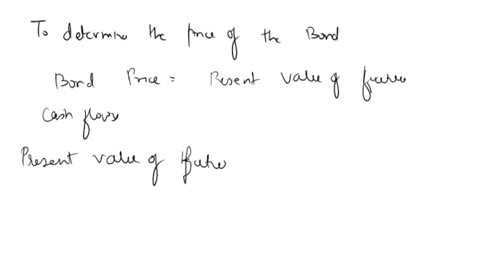 To determine the price of the Bond
Bond Price = Present value of future
Cash flows
Present value of future